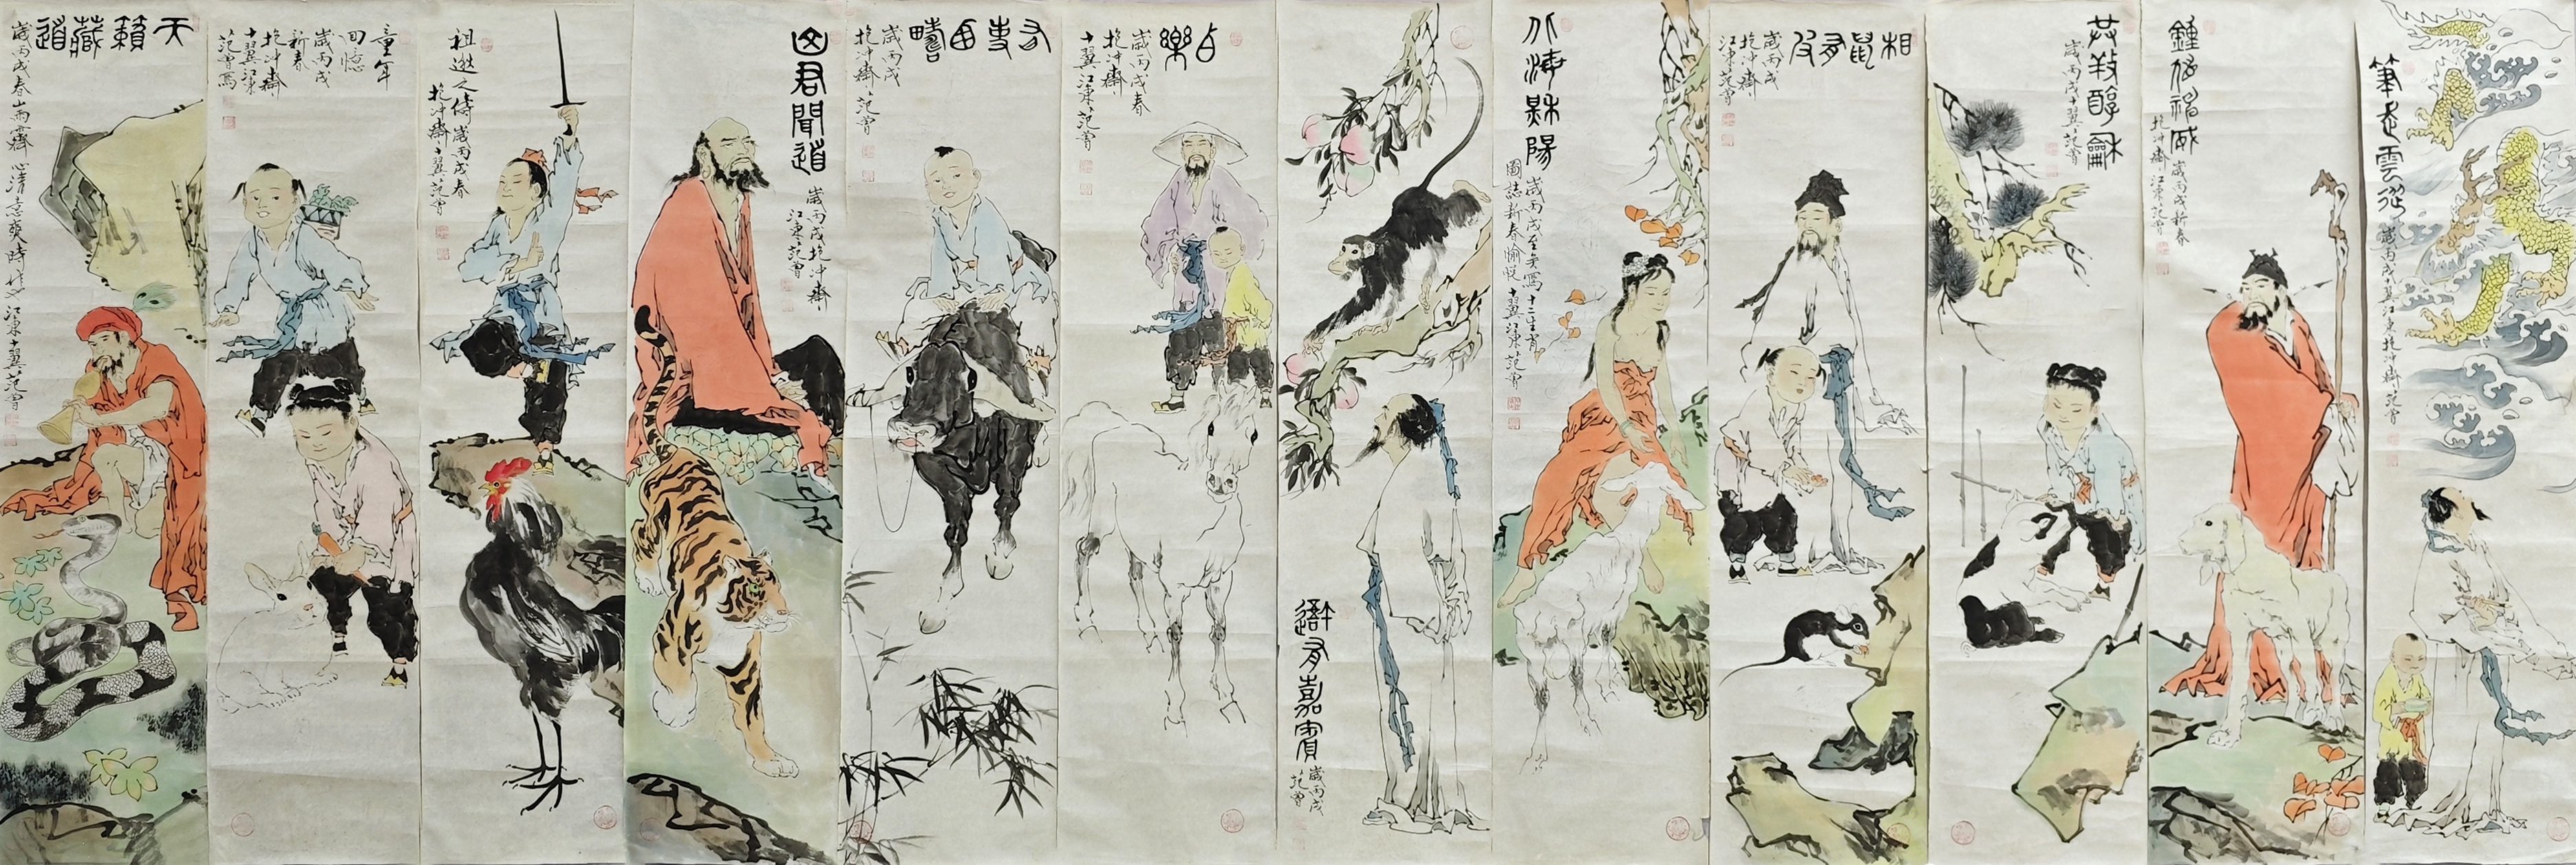 天籟藏道
歲丙戌春山雨霽心清意爽時作之江東十翼范曾
童年
回憶
歲丙戌
新春
抱沖齋
十翼江東
范曾寫
祖逖之儔歲丙戌春
抱沖齋十翼范曾
山君聞道
歲丙戌抱沖齋
江東范曾
有事西疇
歲丙戌
抱沖齋范曾
樂
歲丙戌春
抱沖齋
十翼江東范曾
有嘉賓
歲丙戌
范曾
海陽
歲丙戌至矣寫十二生肖
圖誌新春愉悅十翼江東范曾
相鼠有皮
歲丙戌
抱沖齋
江東范曾
共牧醇龢
歲丙戌十翼范曾
鍾馗神威
歲丙戌新春
抱沖齋江東范曾
筆走雲從
歲丙戌十翼江東抱沖齋范曾